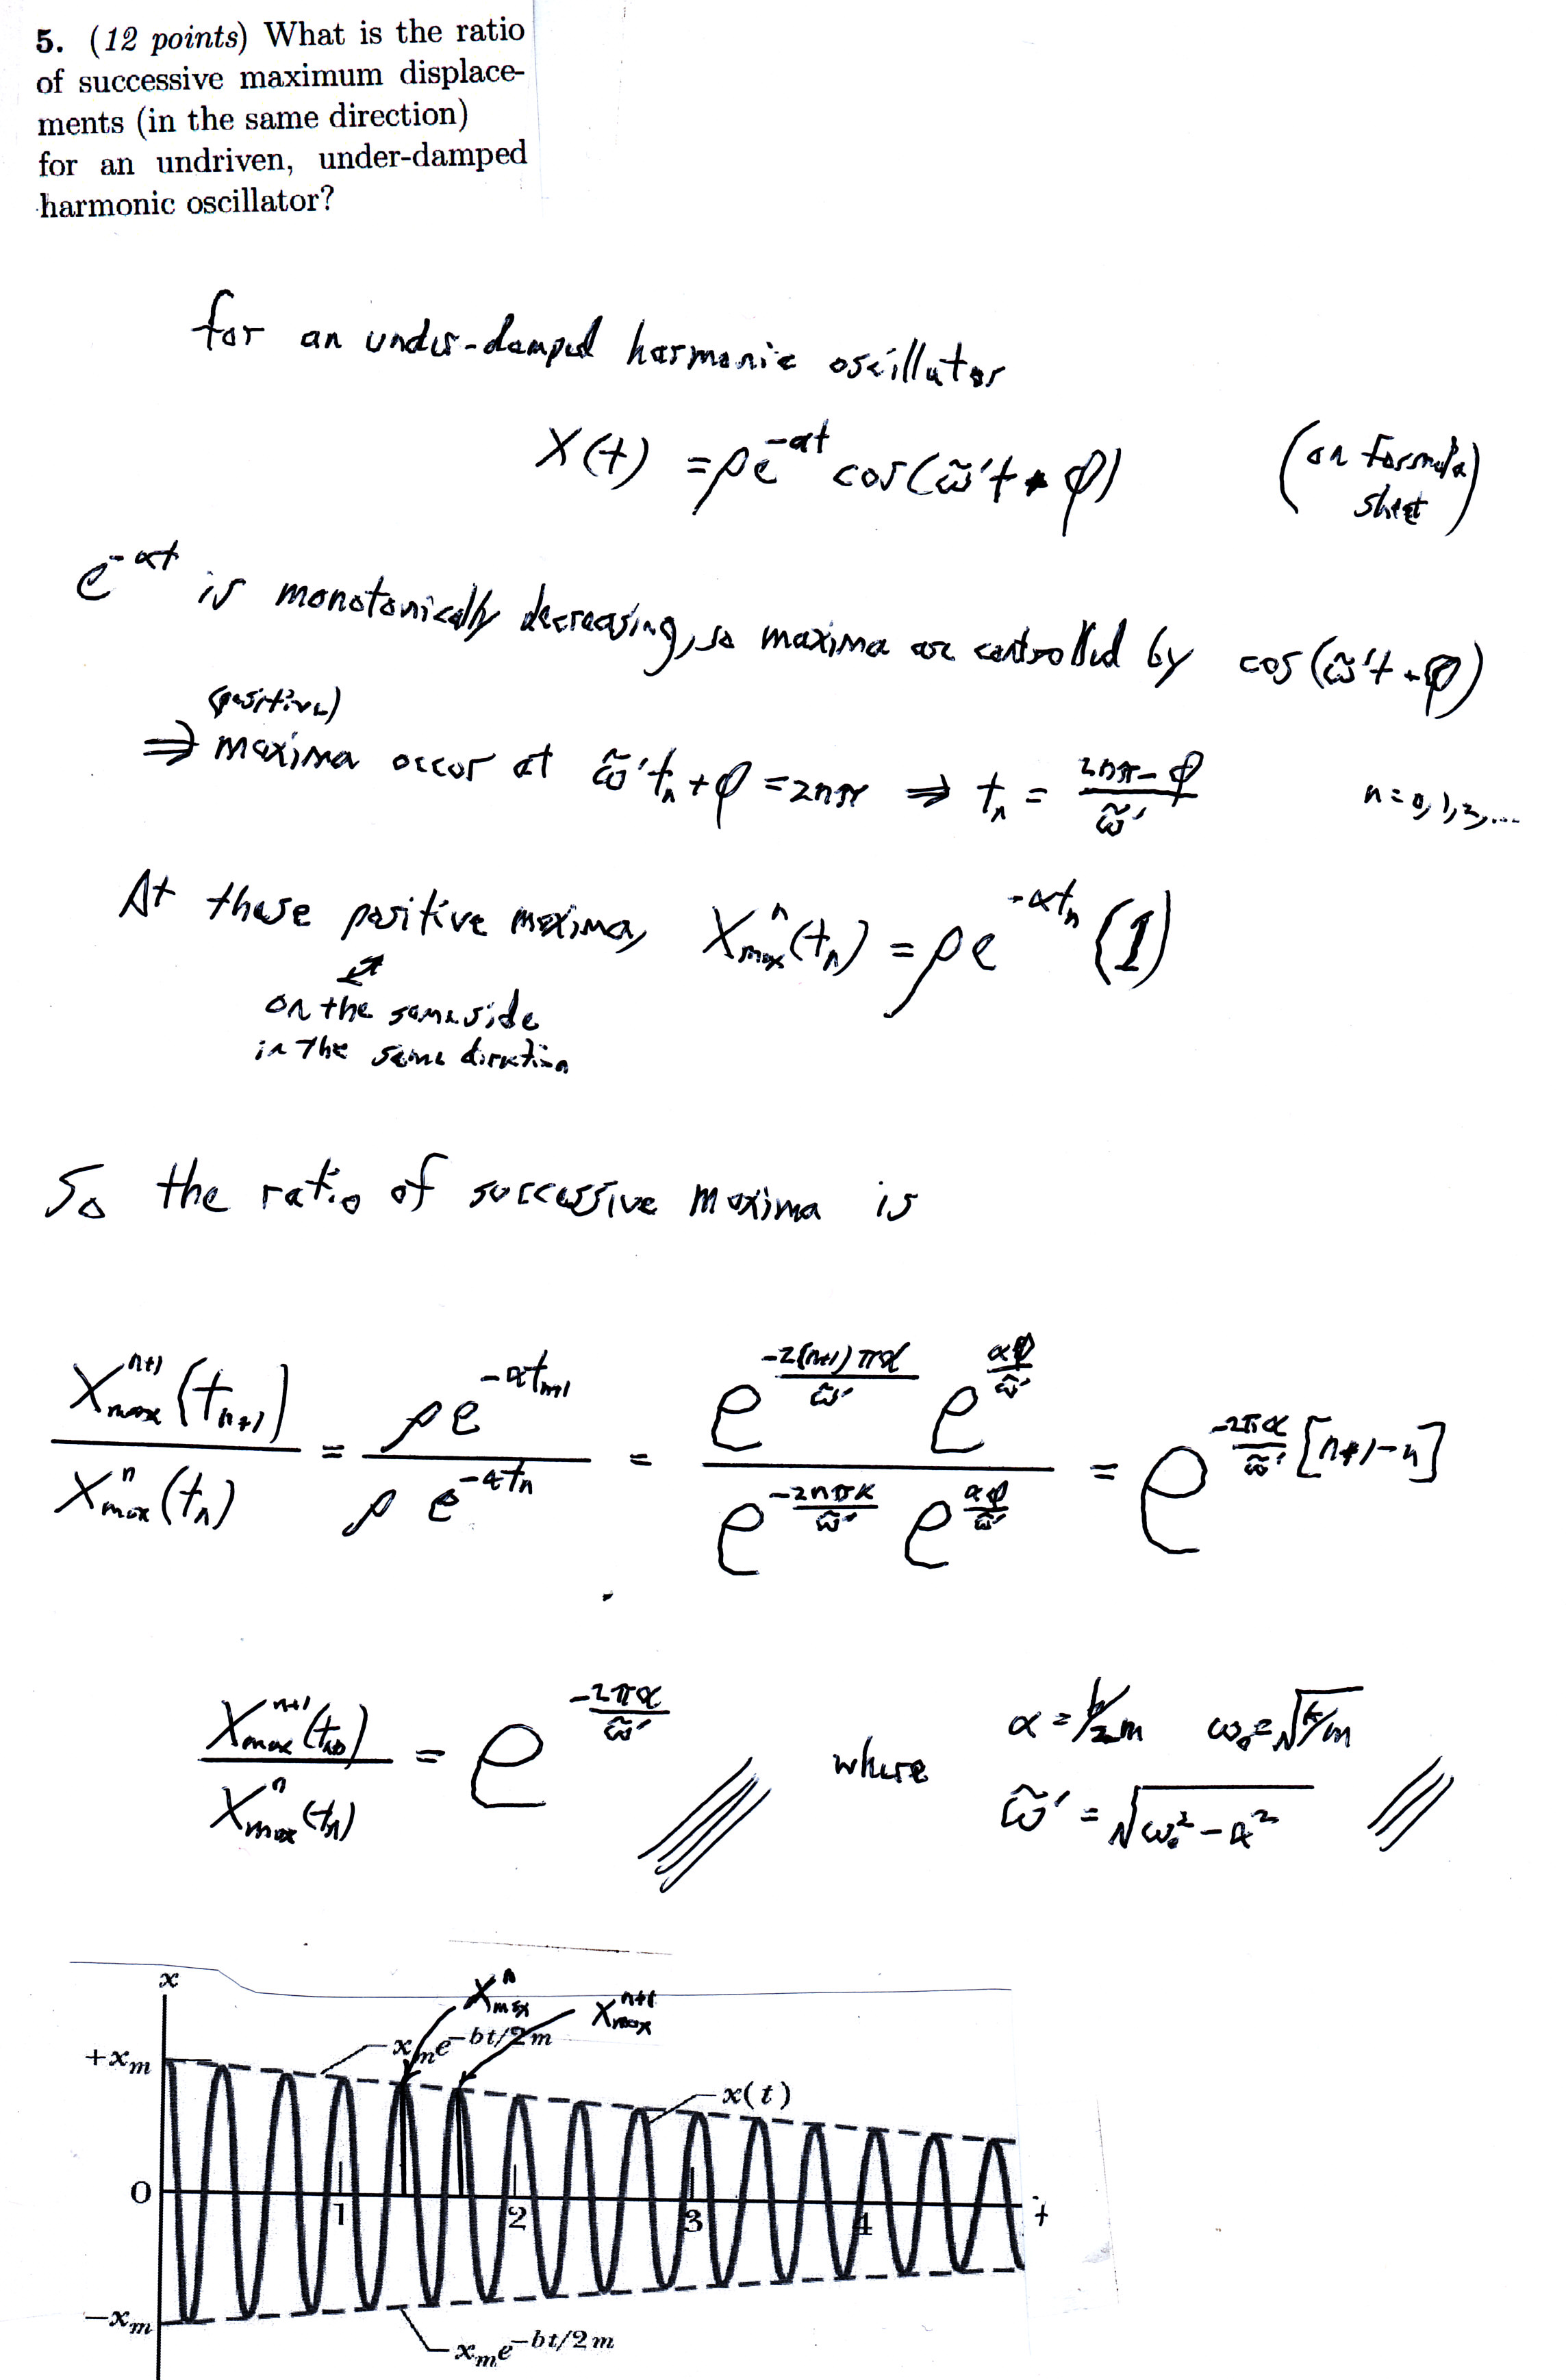 5. (12 points) What is the ratio
of successive maximum displace-
ments (in the same direction)
for an undriven, under-damped
harmonic oscillator?
for an under-damped harmonic oscillator
X(t) = ρe^{-αt} cos(ω̃'t + φ) (on formula sheet)
e^{-αt} is monotonically decreasing, so maxima are controlled by cos(ω̃'t + φ)
(positive)
⇒ maxima occur at ω̃'t_n + φ = 2nπ ⇒ t_n = (2nπ - φ)/ω̃' n = 0, 1, 2, ...
At these positive maxima, X_max^n(t_n) = ρe^{-αt_n} (1)
on the same side
in the same direction
So the ratio of successive maxima is
X_max^{n+1}(t_{n+1}) / X_max^n(t_n) = ρe^{-αt_{n+1}} / ρe^{-αt_n} = e^{-2(n+1)πα/ω̃'} e^{αφ/ω̃'} / e^{-2nπα/ω̃'} e^{αφ/ω̃'} = e^{-2πα/ω̃' [n+1-n]}
X_max^{n+1}(t_{n+1}) / X_max^n(t_n) = e^{-2πα/ω̃'} where α = b/2m ω₀ = √k/m
ω̃' = √ω₀² - α²
x
X_max^n
X_max^{n+1}
+x_m
x_m e^{-bt/2m}
x(t)
0
1 2 3 4 t
-x_m
x_m e^{-bt/2m}